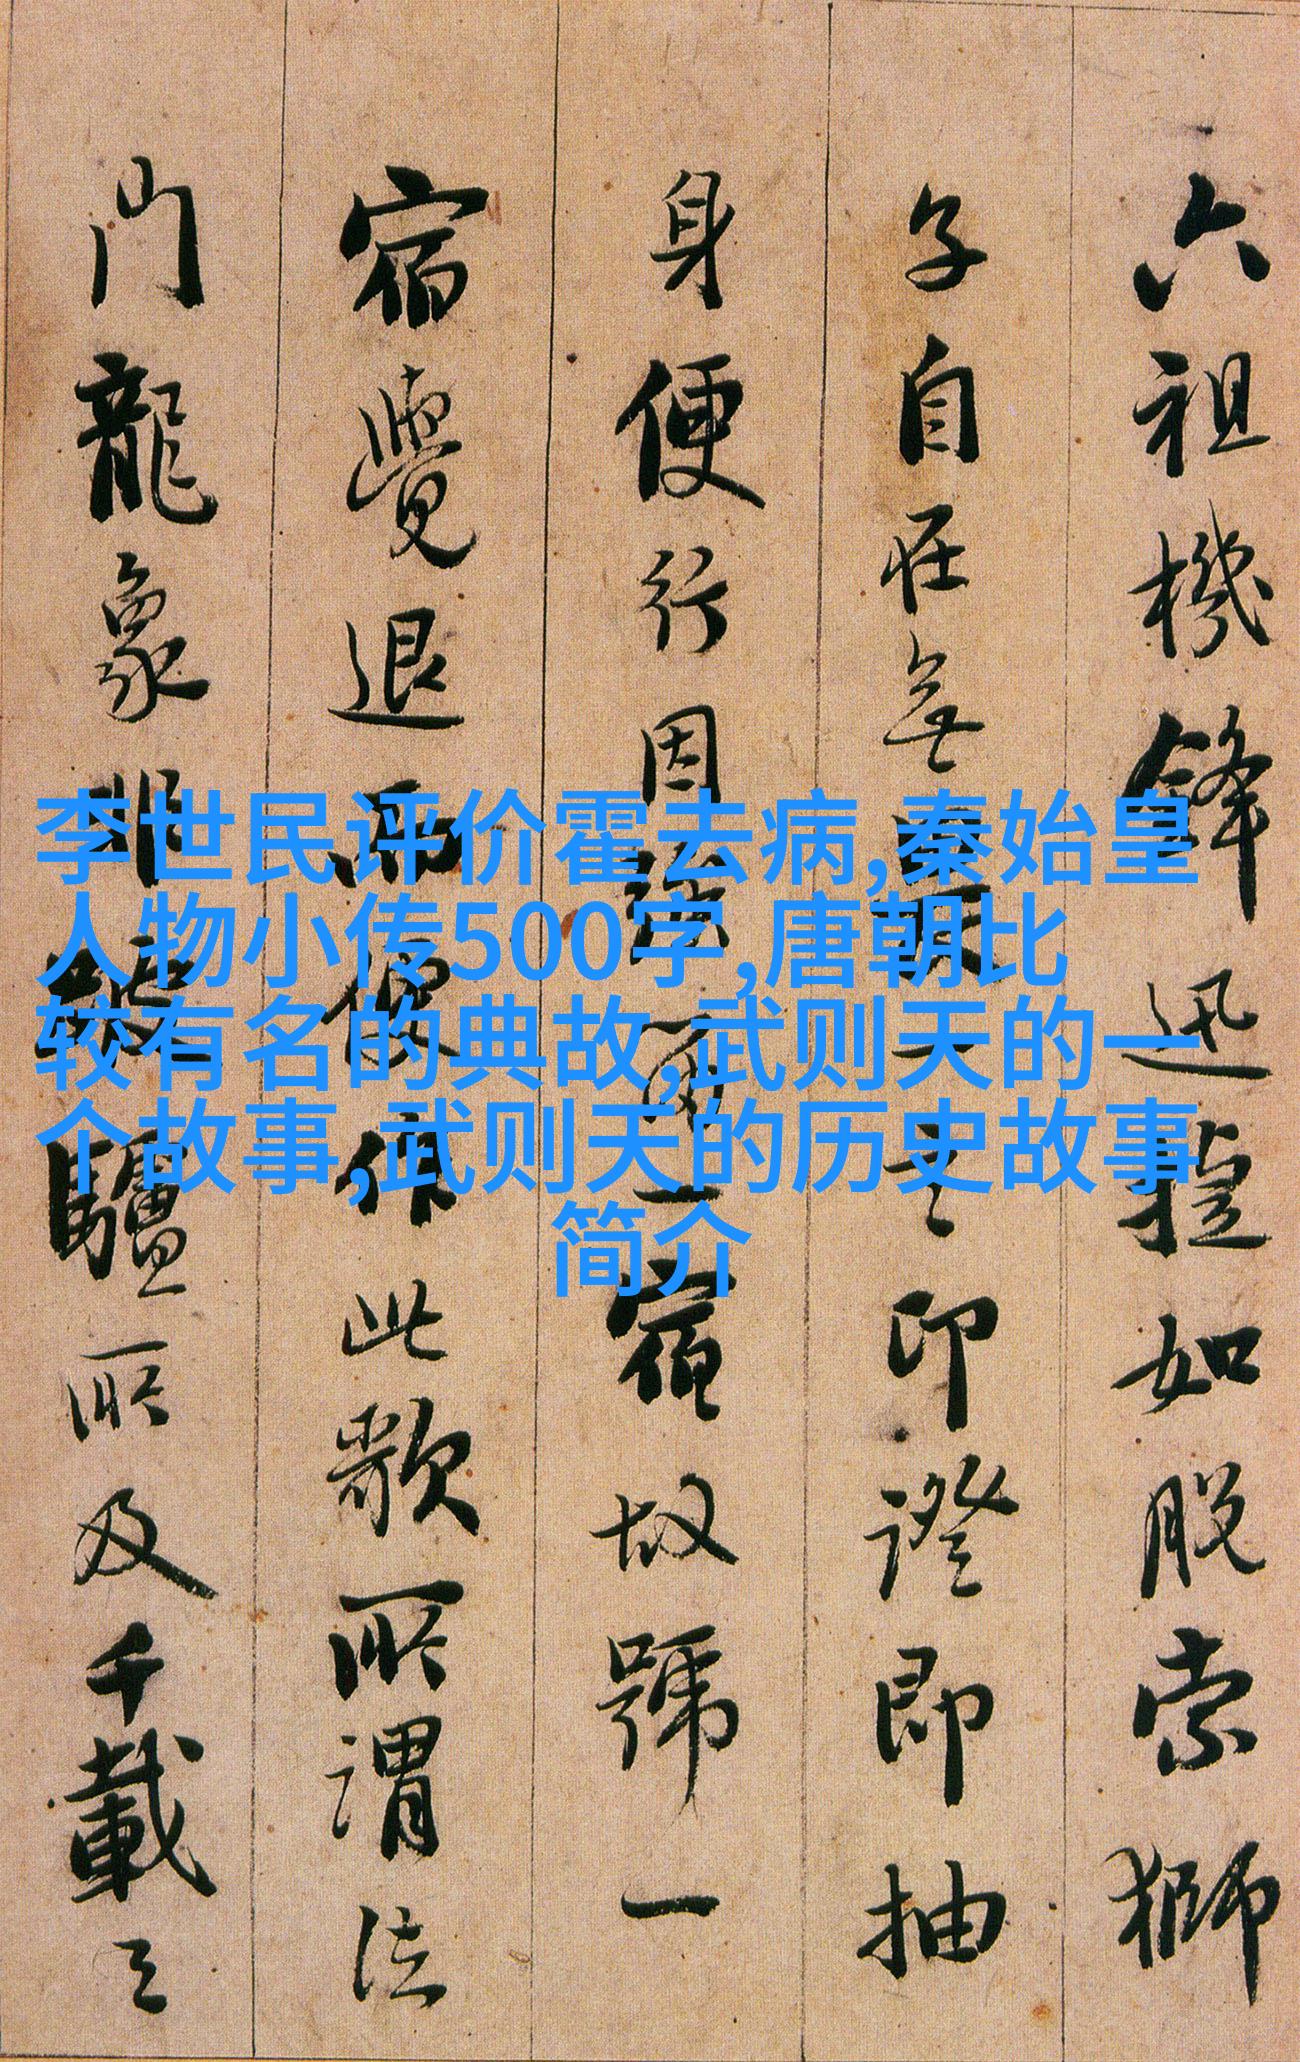 六祖機鋒迅捷如脱索獅
子自在無印證即抽
身便行因一宿故號一
宿覺退而作此歌所謂法
門龍象非驢所及千載之
李世民评价霍去病,秦始皇
人物小传500字,唐朝比
较有名的典故,武则天的一
个故事,武则天的历史故事
简介